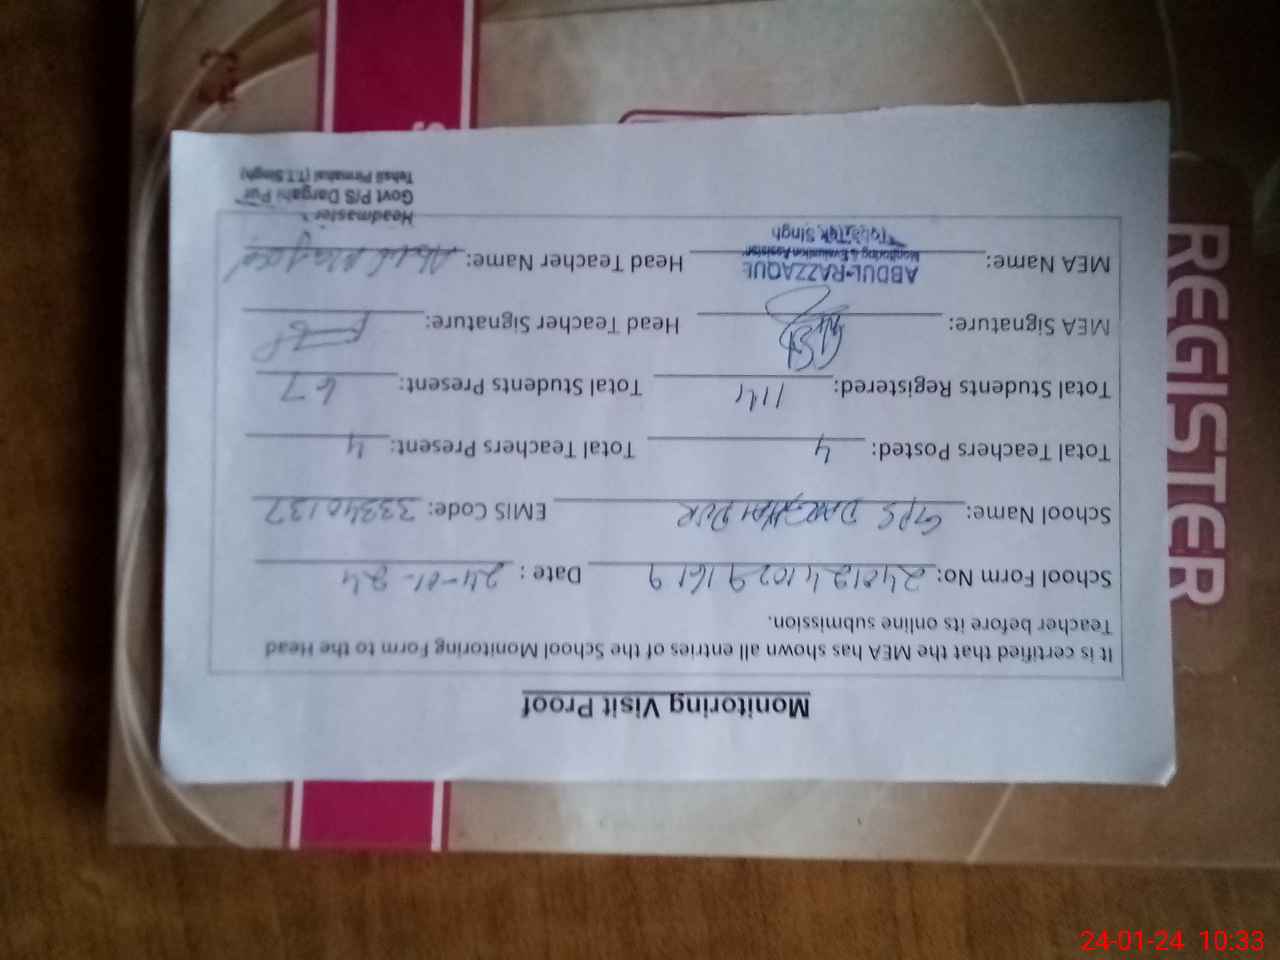 Monitoring Visit Proof
It is certified that the MEA has shown all entries of the School Monitoring Form to the Head
Teacher before its online submission.
School Form No: 24012410291619 Date: 24-01-24
School Name: GPS DARGAHI PUR EMIS Code: 33340137
Total Teachers Posted: 4 Total Teachers Present: 4
Total Students Registered: 114 Total Students Present: 67
MEA Signature: Head Teacher Signature:
MEA Name: ABDUL-RAZZAQUE Head Teacher Name: Abdul
Monitoring & Evaluation Assistant
Toba Tek Singh
Headmaster
Govt P/S Dargahi Pur
Tehsil Pirmahal (T.T.Singh)
REGISTER
24-01-24 10:33